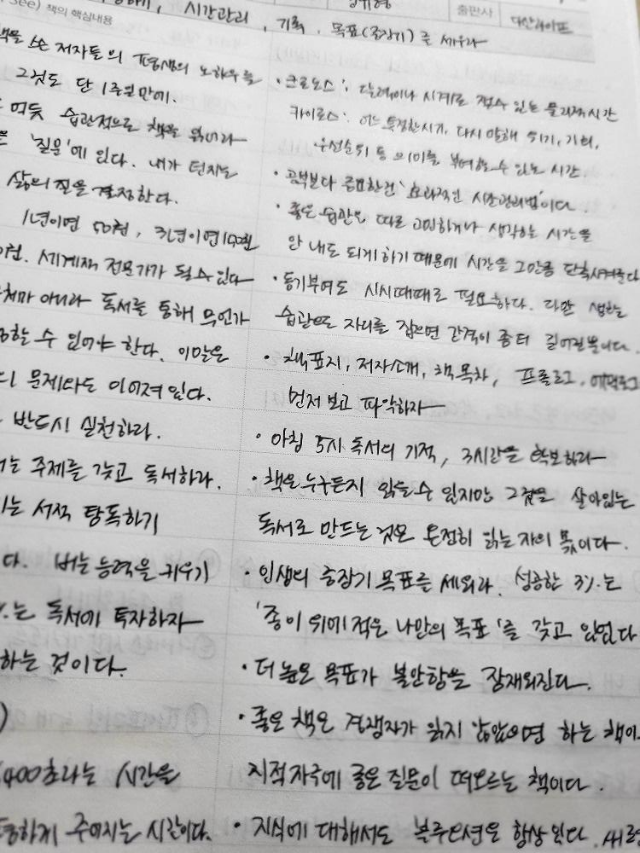 출판사
다산라이프
(See) 책의 핵심내용
시간관리, 기록, 목표(중장기)를 세우라
책을 쓴 저자들의 평생의 노하우를
그것도 단 1주일만에.
먹듯 습관적으로 책을 읽어라
'질문'에 있다. 내가 던지는
삶의 질을 결정한다.
1년이면 50권, 3년이면 150권
세계적 전문가가 될 수 있다
아니라 독서를 통해 무언가
할 수 있어야 한다. 이말은
문제와도 이어져 있다.
반드시 실천하라.
주제를 갖고 독서하라.
서적 탐독하기
다. 버는 능력을 키우기
는 독서에 투자하자
하는 것이다.
400초라는 시간을
하게 주어지는 시간이다.
· 크로노스: 달력이나 시계로 잴수 있는 물리적시간
카이로스: 어느 특정한시기, 다시 말해 위기, 기회,
우선순위 등 의미를 부여할 수 있는 시간.
· 공부보다 중요한건 '효과적인 시간관리법'이다.
· 좋은 습관은 따로 고민하거나 생각하는 시간을
안 내도 되게 하기 때문에 시간을 그만큼 단축시켜준다
· 동기부여도 시시때때로 필요하다. 다만 생활
습관으로 자리를 잡으면 간격이 좀더 길어질뿐이다.
· 책표지, 저자소개, 책목차, 프롤로그, 에필로그
먼저 보고 파악하자
· 아침 5시 독서의 기적, 3시간을 확보하라
· 책은 누구든지 읽을 수 있지만 그것을 살아있는
독서로 만드는 것은 온전히 읽는 자의 몫이다.
· 인생의 중장기 목표를 세워라. 성공한 3%는
'종이 위에 적은 나만의 목표'를 갖고 있었다
· 더 높은 목표가 불안함을 잠재워진다.
· 좋은 책은 경쟁자가 읽지 않았으면 하는 책이
지적자극에 좋은 질문이 떠오르는 책이다.
· 지식에 대해서도 블루오션은 항상 있다.